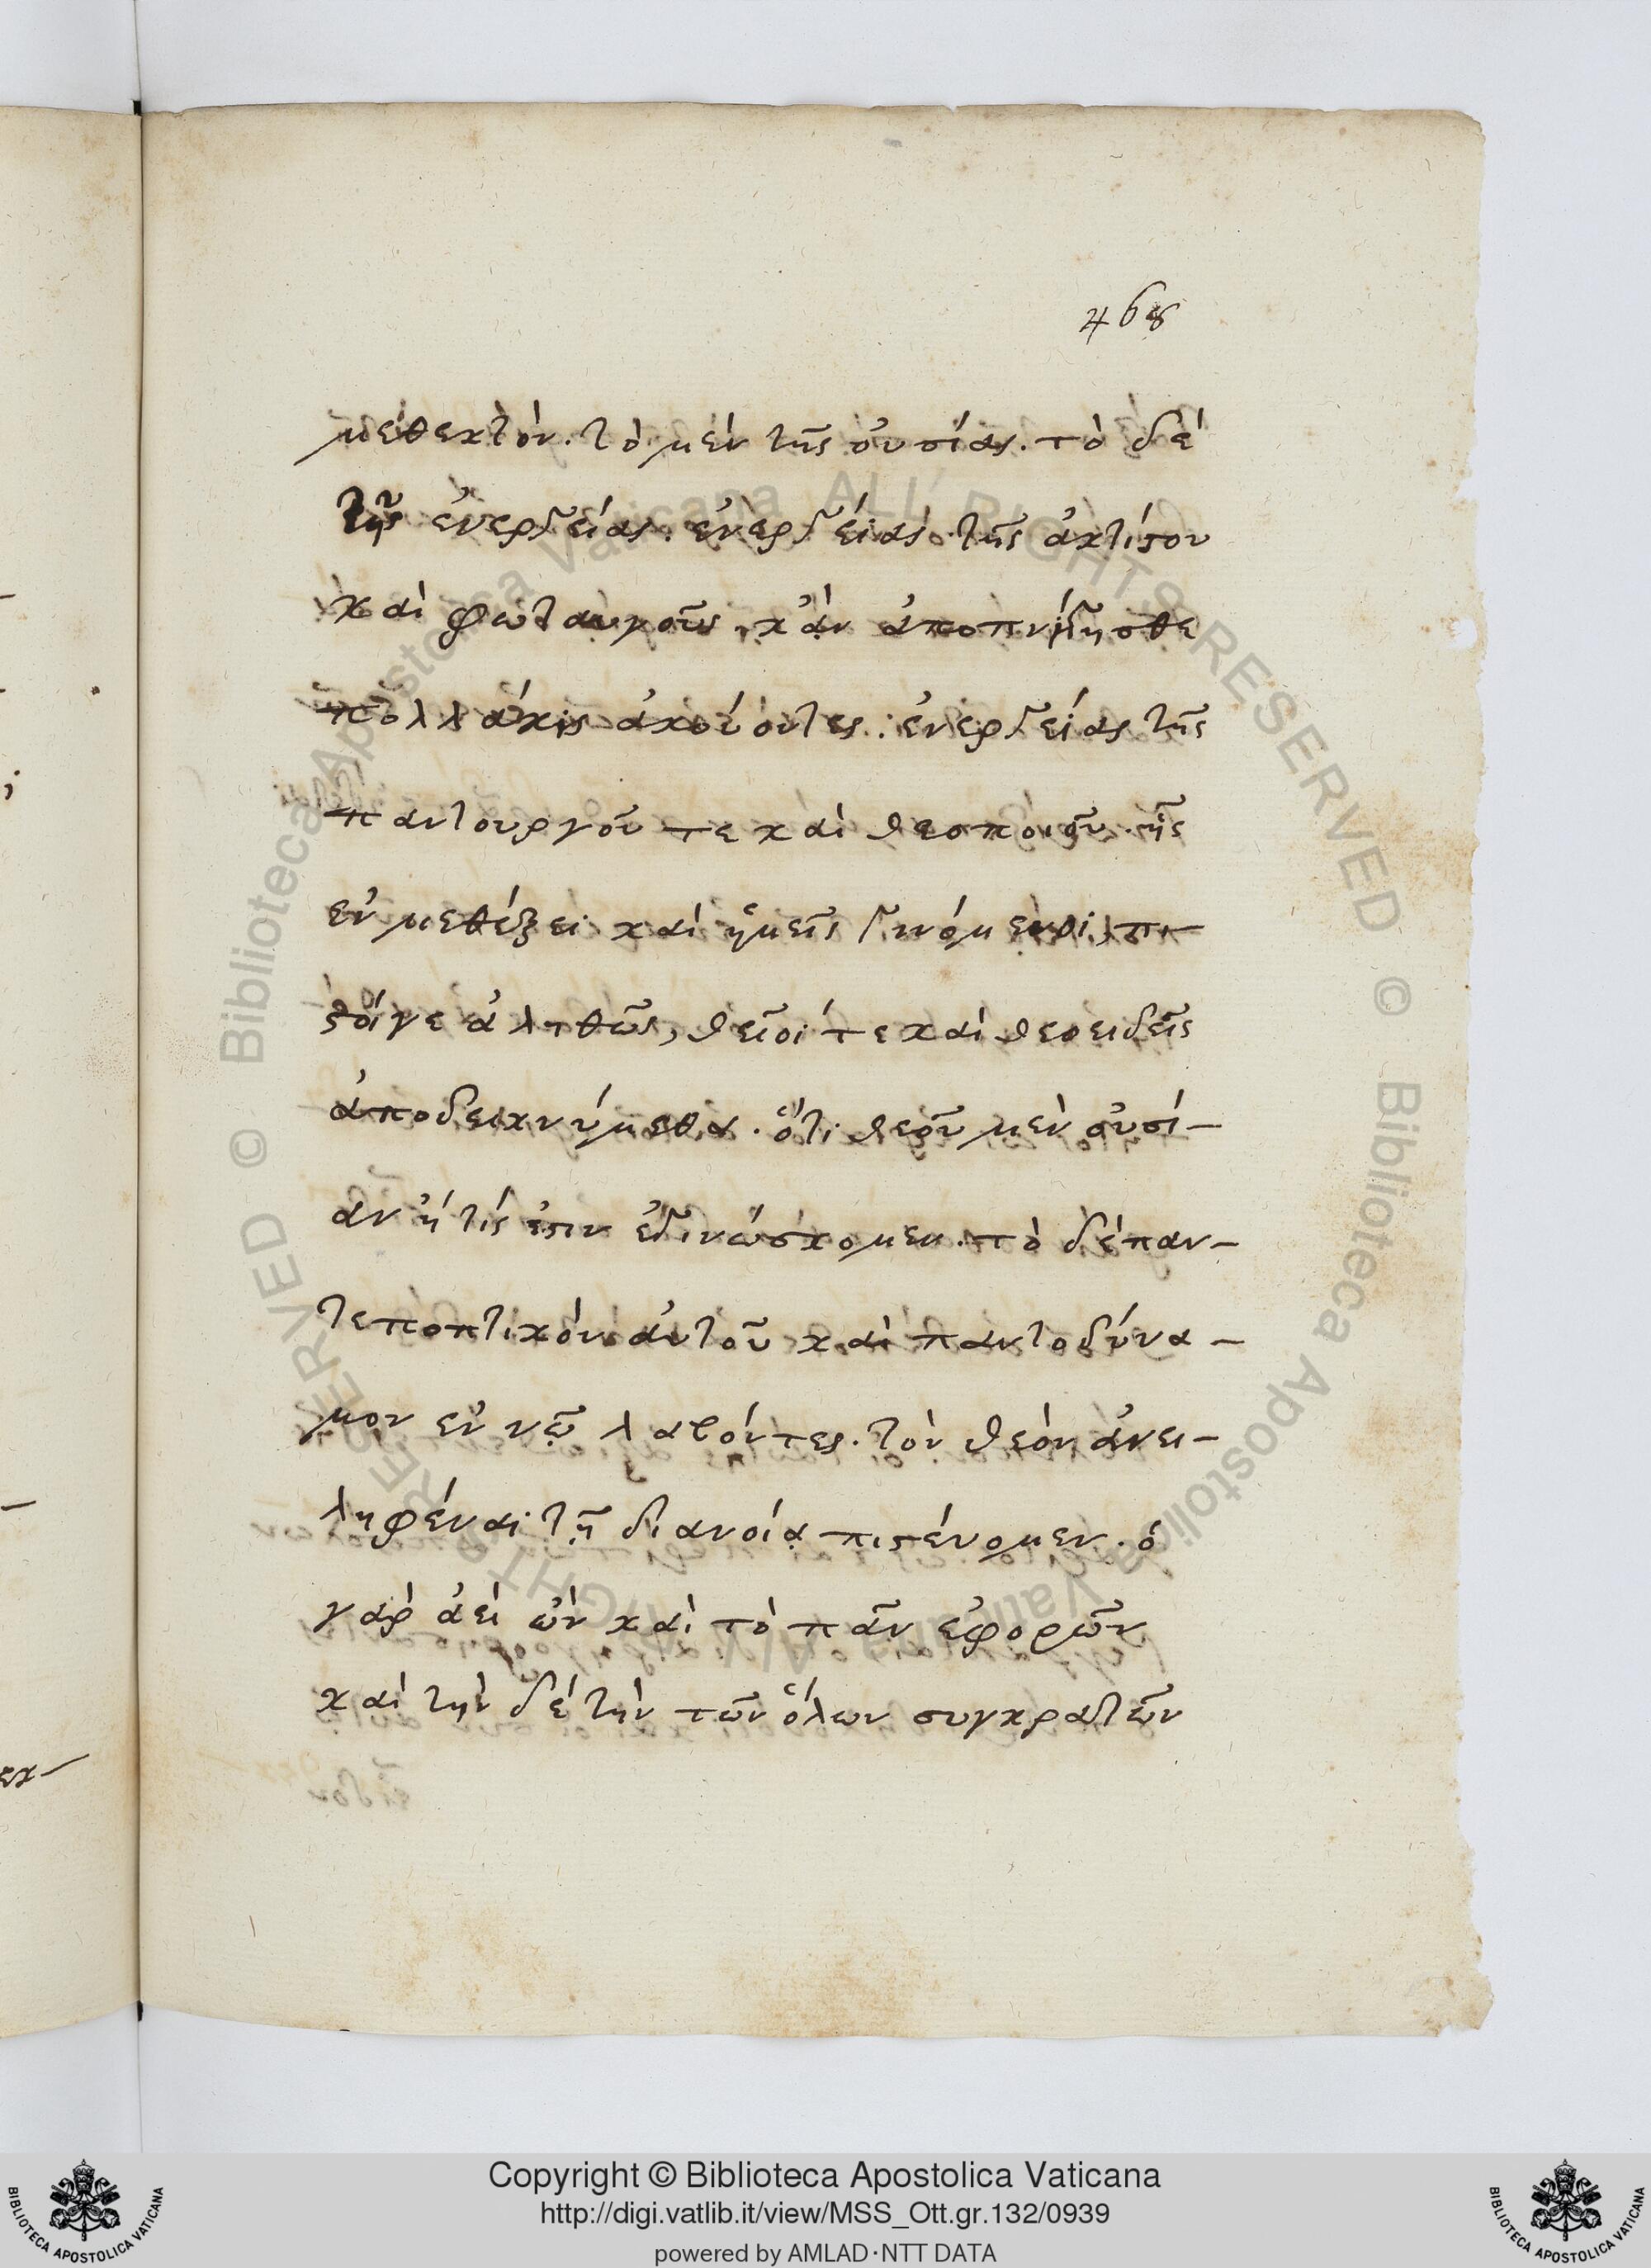 468
μεθεκτὸν. τὸ μὲν τῆς οὐσίας. τὸ δὲ
τῆς ἐνεργείας. ἐνεργείας τῆς ἀκτίστου
καὶ φωταυγοῦς, κἂν ἀποπνίγησθε
πολλάκις ἀκούοντες. ἐνεργείας τῆς
παντουργοῦ τε καὶ θεοποιοῦ. ἧς
ἐν μεθέξει καὶ ἡμεῖς γινόμενοι, πι-
στοίγε ἀληθῶς, θεῖοί τε καὶ θεοειδεῖς
ἀποδεικνύμεθα. ὅτι θεοῦ μὲν οὐσί-
αν ἥτίς ἐστιν ἐγινώσκομεν. τὸ δὲ παν-
τεποπτικὸν αὐτοῦ καὶ παντοδύνα-
μον ἐν νῷ λαβόντες. τὸν θεὸν ἀνει-
ληφέναι τῇ διανοίᾳ πιστεύομεν. ὁ
γὰρ ἀεὶ ὢν καὶ τὸ πᾶν ἐφορῶν
καὶ τὴν δὲ τὴν τῶν ὅλων συγκρατῶν
© Biblioteca Apostolica Vaticana ALL RIGHTS RESERVED
© Biblioteca Apostolica Vaticana ALL RIGHTS RESERVED
Copyright © Biblioteca Apostolica Vaticana
http://digi.vatlib.it/view/MSS_Ott.gr.132/0939
powered by AMLAD·NTT DATA
BIBLIOTECA APOSTOLICA VATICANA
BIBLIOTECA APOSTOLICA VATICANA